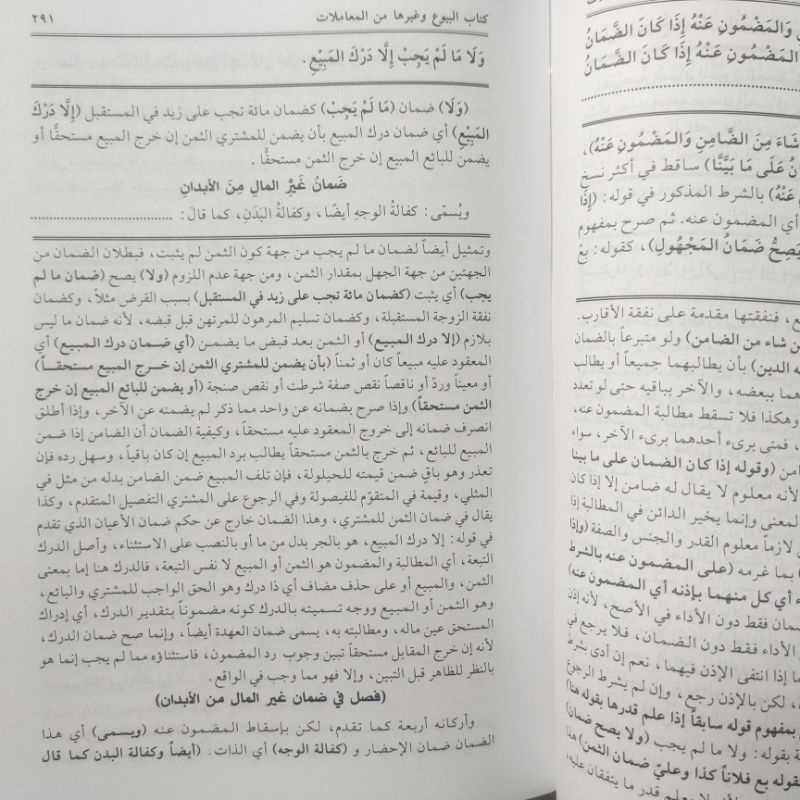 كتاب البيوع وغيرها من المعاملات ٢٩١
وَلَا مَا لَمْ يَجِبْ إِلَّا دَرَكَ المَبِيْعِ .
(وَلَا) ضمان (مَا لَمْ يَجِبْ) كضمان مائة تجب على زيد في المستقبل (إِلَّا دَرَكَ
المَبِيْعِ) أي ضمان درك المبيع بأن يضمن للمشتري الثمن إن خرج المبيع مستحقًّا أو
يضمن للبائع المبيع إن خرج الثمن مستحقًّا .
ضَمانُ غَيْرِ المالِ مِنَ الأبدانِ
ويُسمّى: كفالةُ الوجهِ أيضًا، وكفالةَ البَدَنِ، كما قالَ:
وتمثيل أيضاً لضمان ما لم يجب من جهة كون الثمن لم يثبت، فبطلان الضمان من
الجهتين من جهة الجهل بمقدار الثمن، ومن جهة عدم اللزوم (ولا) يصح (ضمان ما لم
يجب) أي يثبت (كضمان مائة تجب على زيد في المستقبل) بسبب القرض مثلاً، وكضمان
نفقة الزوجة المستقبلة، وكضمان تسليم المرهون للمرتهن قبل قبضه، لأنه ضمان ما ليس
بلازم (إلا درك المبيع) أو الثمن بعد قبض ما يضمن (أي ضمان درك المبيع) أي
المعقود عليه مبيعاً كان أو ثمناً (بأن يضمن للمشتري الثمن إن خرج المبيع مستحقاً)
أو معيناً وردّ أو ناقصاً نقص صفة شرطت أو نقص صنجة (أو يضمن للبائع المبيع إن خرج
الثمن مستحقاً) وإذا صرح بضمانه عن واحد مما ذكر لم يضمنه عن الآخر، وإذا أطلق
انصرف ضمانه إلى خروج المعقود عليه مستحقاً، وكيفية الضمان أن الضامن إذا ضمن
المبيع للبائع، ثم خرج بالثمن مستحقاً يطالب برد المبيع إن كان باقياً، وسهل رده فإن
تعذر وهو باقٍ ضمن قيمته للحيلولة، فإن تلف المبيع ضمن الضامن بدله من مثل في
المثلي، وقيمة في المتقوّم للفيصولة وفي الرجوع على المشتري التفصيل المتقدم، وكذا
يقال في ضمان الثمن للمشتري، وهذا الضمان خارج عن حكم ضمان الأعيان الذي تقدم
في قوله: إلا درك المبيع، هو بالجر بدل من ما أو بالنصب على الاستثناء، وأصل الدرك
التبعة، أي المطالبة والمضمون هو الثمن أو المبيع لا نفس التبعة، فالدرك هنا إما بمعنى
الثمن، والمبيع أو على حذف مضاف أي ذا درك وهو الحق الواجب للمشتري والبائع،
وهو الثمن أو المبيع ووجه تسميته بالدرك كونه مضموناً بتقدير الدرك، أي إدراك
المستحق عين ماله، ومطالبته به، يسمى ضمان العهدة أيضاً، وإنما صح ضمان الدرك،
لأنه إن خرج المقابل مستحقاً تبين وجوب رد المضمون، فاستثناؤه مما لم يجب إنما هو
بالنظر للظاهر قبل التبين، وإلا فهو مما وجب في الواقع.
(فصل في ضمان غير المال من الأبدان)
وأركانه أربعة كما تقدم، لكن بإسقاط المضمون عنه (ويسمى) أي هذا
الضمان ضمان الإحضار و (كفالة الوجه) أي الذات. (أيضاً وكفالة البدن كما قال
وَالمَضْمُونِ عَنْهُ إِذَا كَانَ الضَّمَانُ
المَضْمُونِ عَنْهُ إِذَا كَانَ الضَّمَانُ
شَاءَ مِنَ الضَّامِنِ وَالمَضْمُونِ عَنْهُ)،
عَلَى مَا بَيَّنَّا) ساقط في أكثر نسخ
عَنْهُ) بالشرط المذكور في قوله: (إِذَا
أي المضمون عنه. ثم صرح بمفهوم
يَصِحُّ ضَمَانُ المَجْهُولِ)، كقوله: بعْ
فنفقتها مقدمة على نفقة الأقارب.
شاء من الضامن) ولو متبرعاً بالضمان
الدين) بأن يطالبهما جميعاً أو يطالب
ببعضه، والآخر بباقيه حتى لو تعدد
وهكذا فلا تسقط مطالبة المضمون عنه،
فمتى برىء أحدهما برىء الآخر، سواء
(وقوله إذا كان الضمان على ما بينا
لأنه معلوم لا يقال له ضامن إلا إذا كان
المعنى وإنما يخير الدائن في المطالبة إذا
لازماً معلوم القدر والجنس والصفة (وإذا
بما غرمه (على المضمون عنه بالشرط
أي كل منهما بإذنه أي المضمون عنه)
فقط دون الأداء في الأصح، لأنه إذن
الأداء فقط دون الضمان، فلا يرجع في
إذا انتفى الإذن فيهما، نعم إن أدى بشرط
لكن بالإذن رجع، وإن لم يشرط الرجوع
بمفهوم قوله سابقاً إذا علم قدرها بقوله هنا)
بقوله: ولا ما لم يجب (ولا يصح ضمان)
بع فلاناً كذا وعليّ ضمان الثمن) هذا
معلم قدر ما يتفقان عليه،